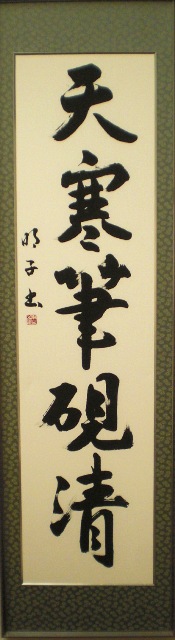 天寒筆硯清
明子書